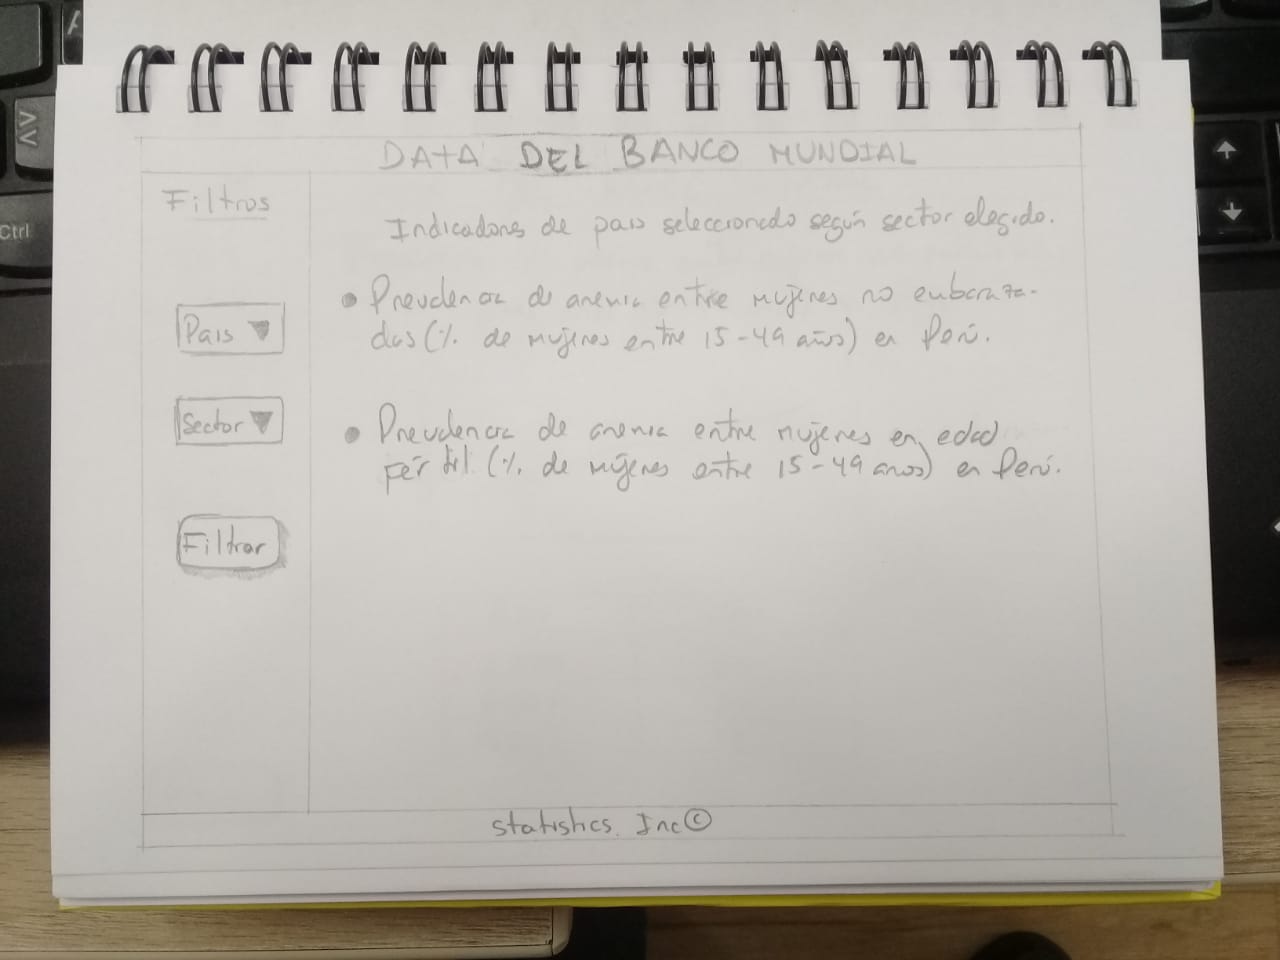 DATA DEL BANCO MUNDIAL
Filtros
País
Sector
Filtrar
Indicadores de pais seleccionado según sector elegido.
• Prevalencia de anemia entre mujeres no embaraza-
das (% de mujeres entre 15-49 años) en Perú.
• Prevalencia de anemia entre mujeres en edad
fértil. (% de mujeres entre 15-49 años) en Perú.
statistics. Inc©
Ctrl